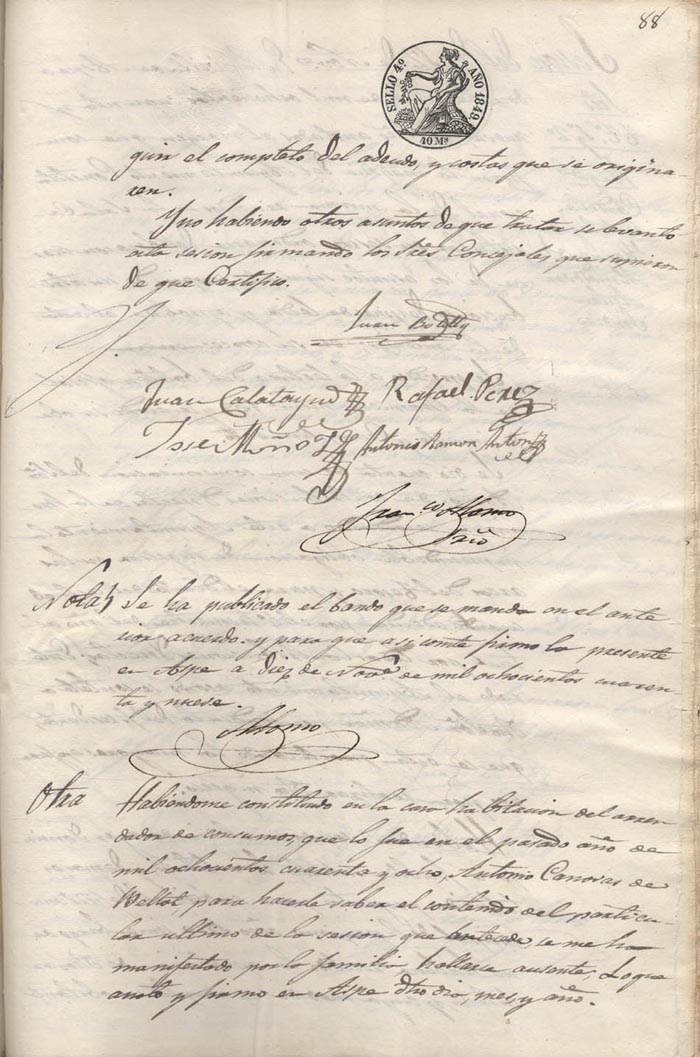 88
SELLO 4º AÑO 1849.
40 Ms
guir el completo del adeudo, y costas que se origina-
ren.
Y no habiendo otros asuntos de que tratar se levantó
esta sesion firmando los Sres Concejales, que supieron
de que Certifico.
Juan Botella
Juan Calatayud Rafael Perez
Jose Miño Antonio Ramon Anton
Franco Alonso
Srio
Nota Se ha publicado el bando que se manda en el ante
rior acuerdo. y para que asi conste firmo la presente
en Aspe a diez de Nove de mil ochocientos cuaren-
ta y nueve.
Alonso
Otra Habiendome constituido en la casa habitacion del arren
dador de consumos, que lo fue en el pasado año de
mil ochocientos cuarenta y ocho, Antonio Canovas de
Bellot, para hacerle saber el contenido del particu-
lar ultimo de la sesion que antecede, se me ha
manifestado por la familia, hallarse ausente. Lo que
anoto y firmo en Aspe dho dia, mes, y año.